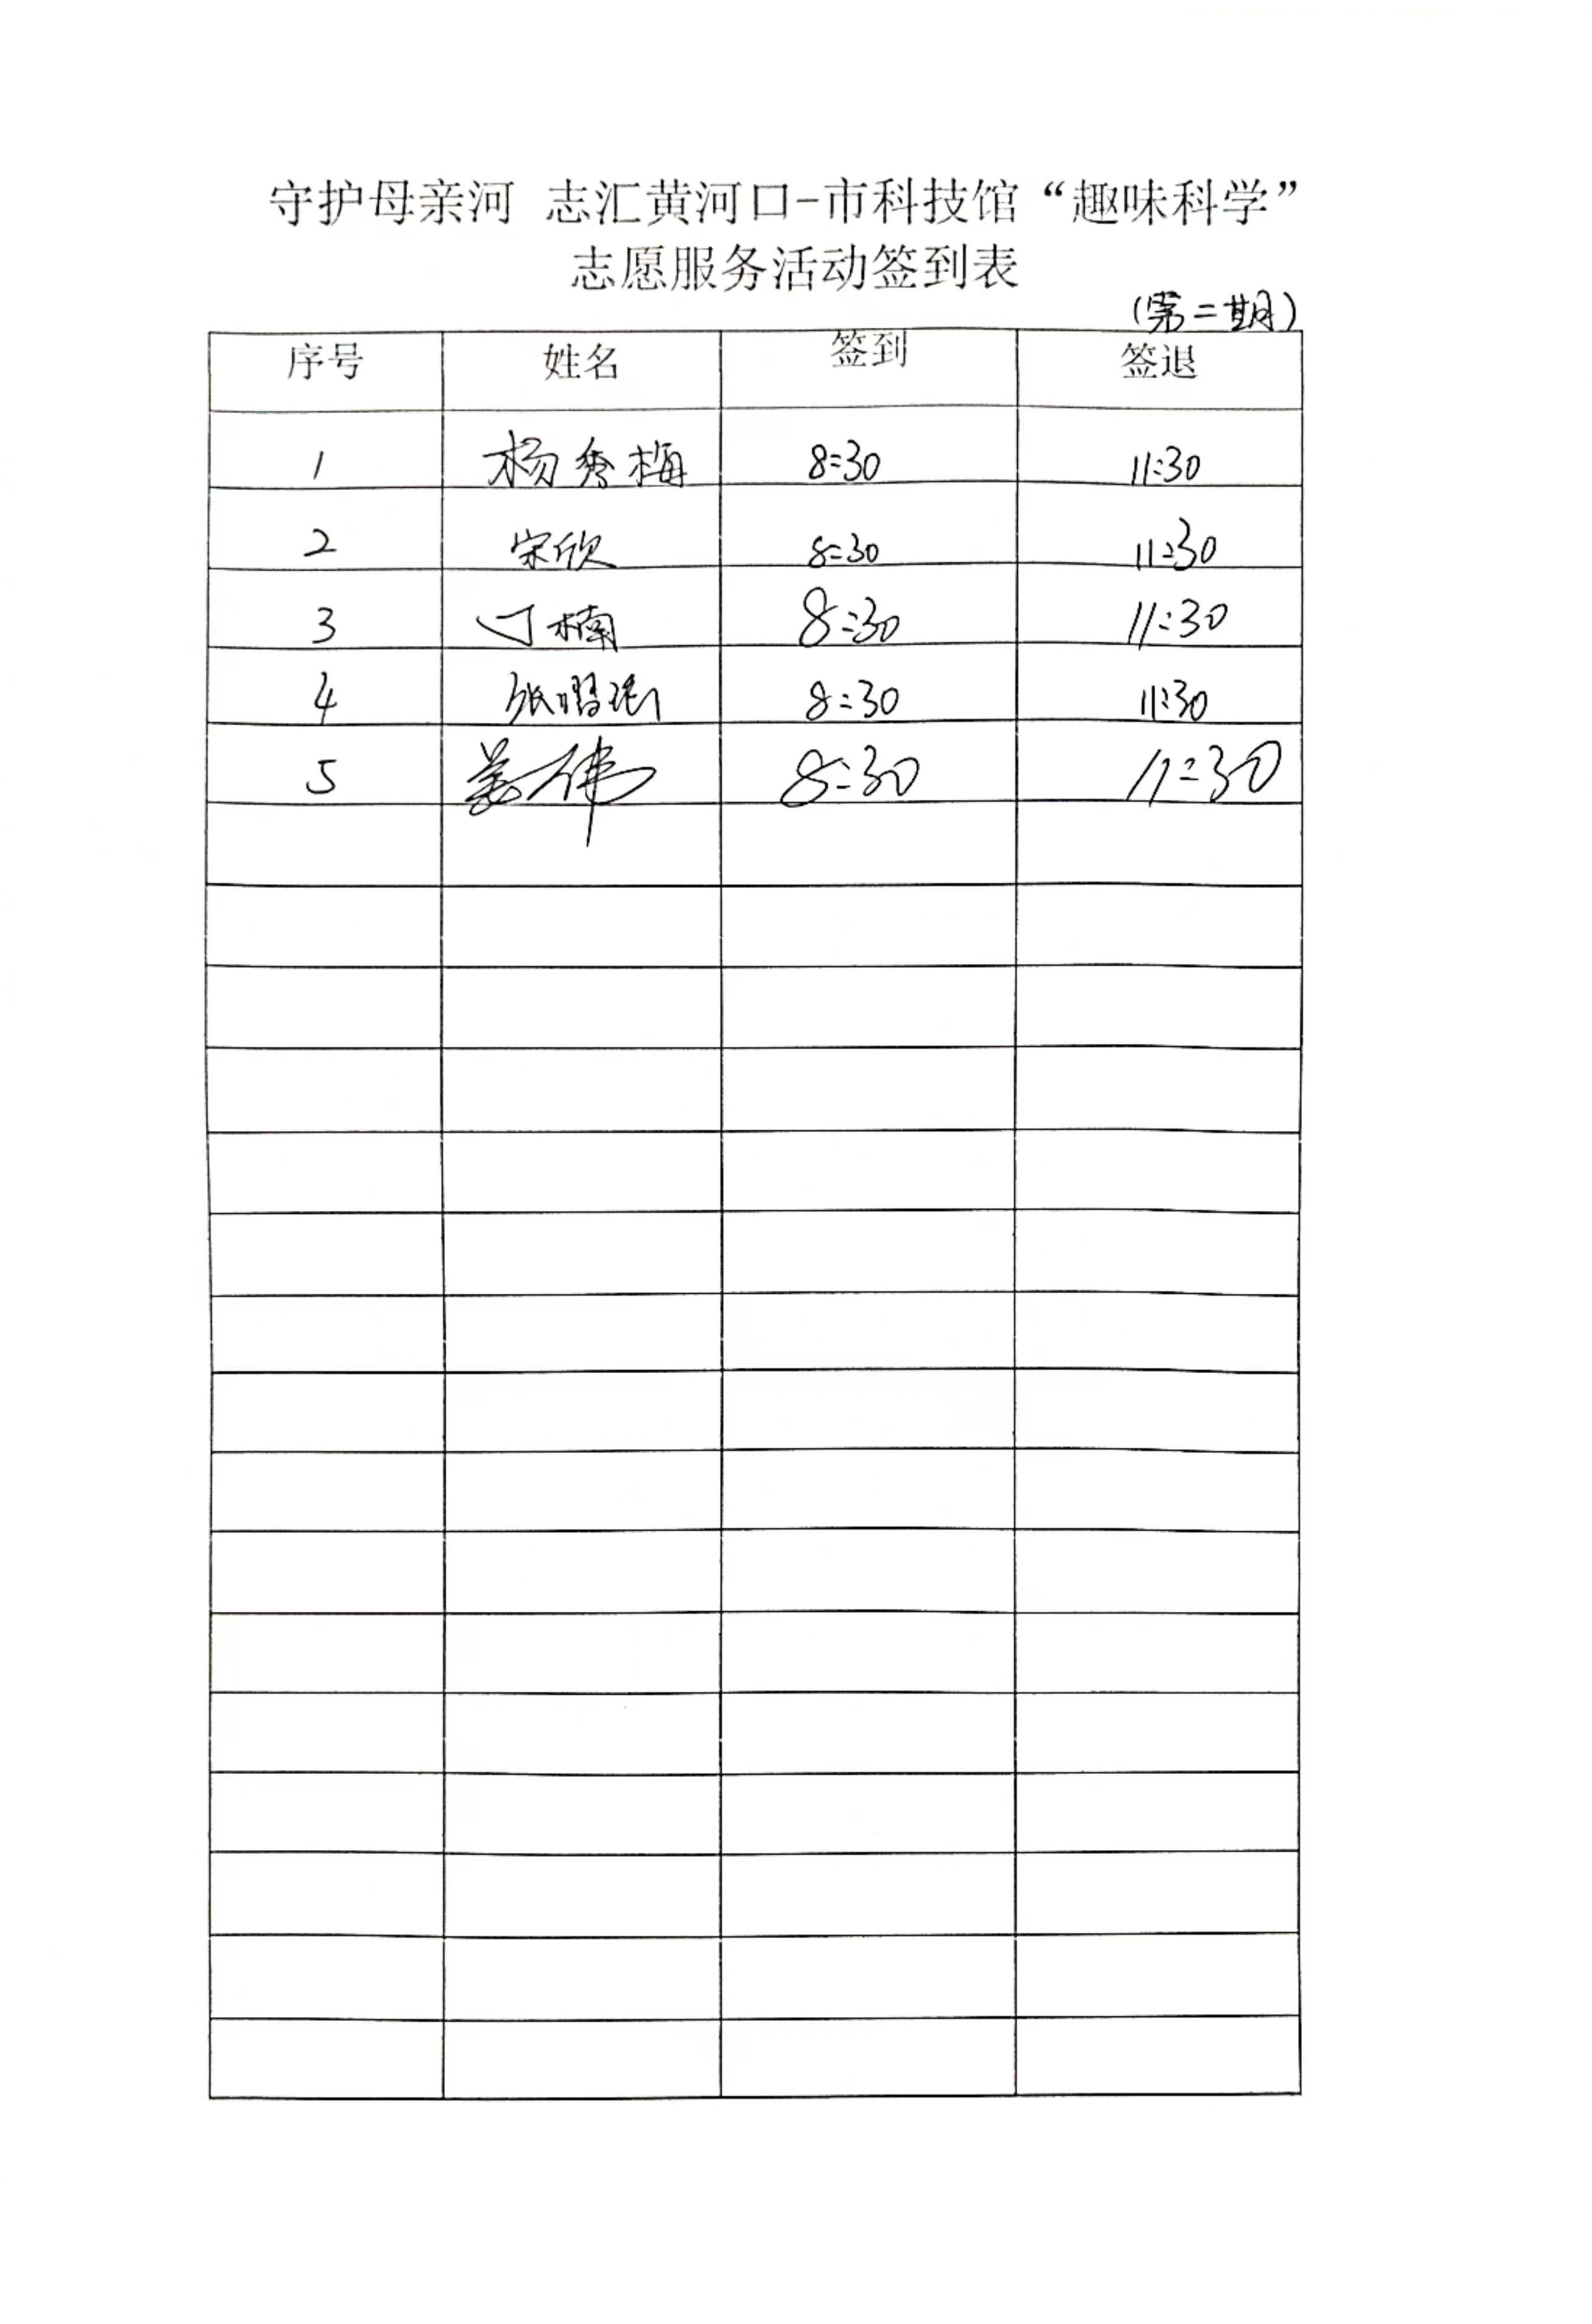 守护母亲河 志汇黄河口-市科技馆“趣味科学”
志愿服务活动签到表
(第二期)
序号 姓名 签到 签退
1 杨秀梅 8:30 11:30
2 宋欣 8:30 11:30
3 丁楠 8:30 11:30
4 张 8:30 11:30
5 姜伟 8:30 11:30